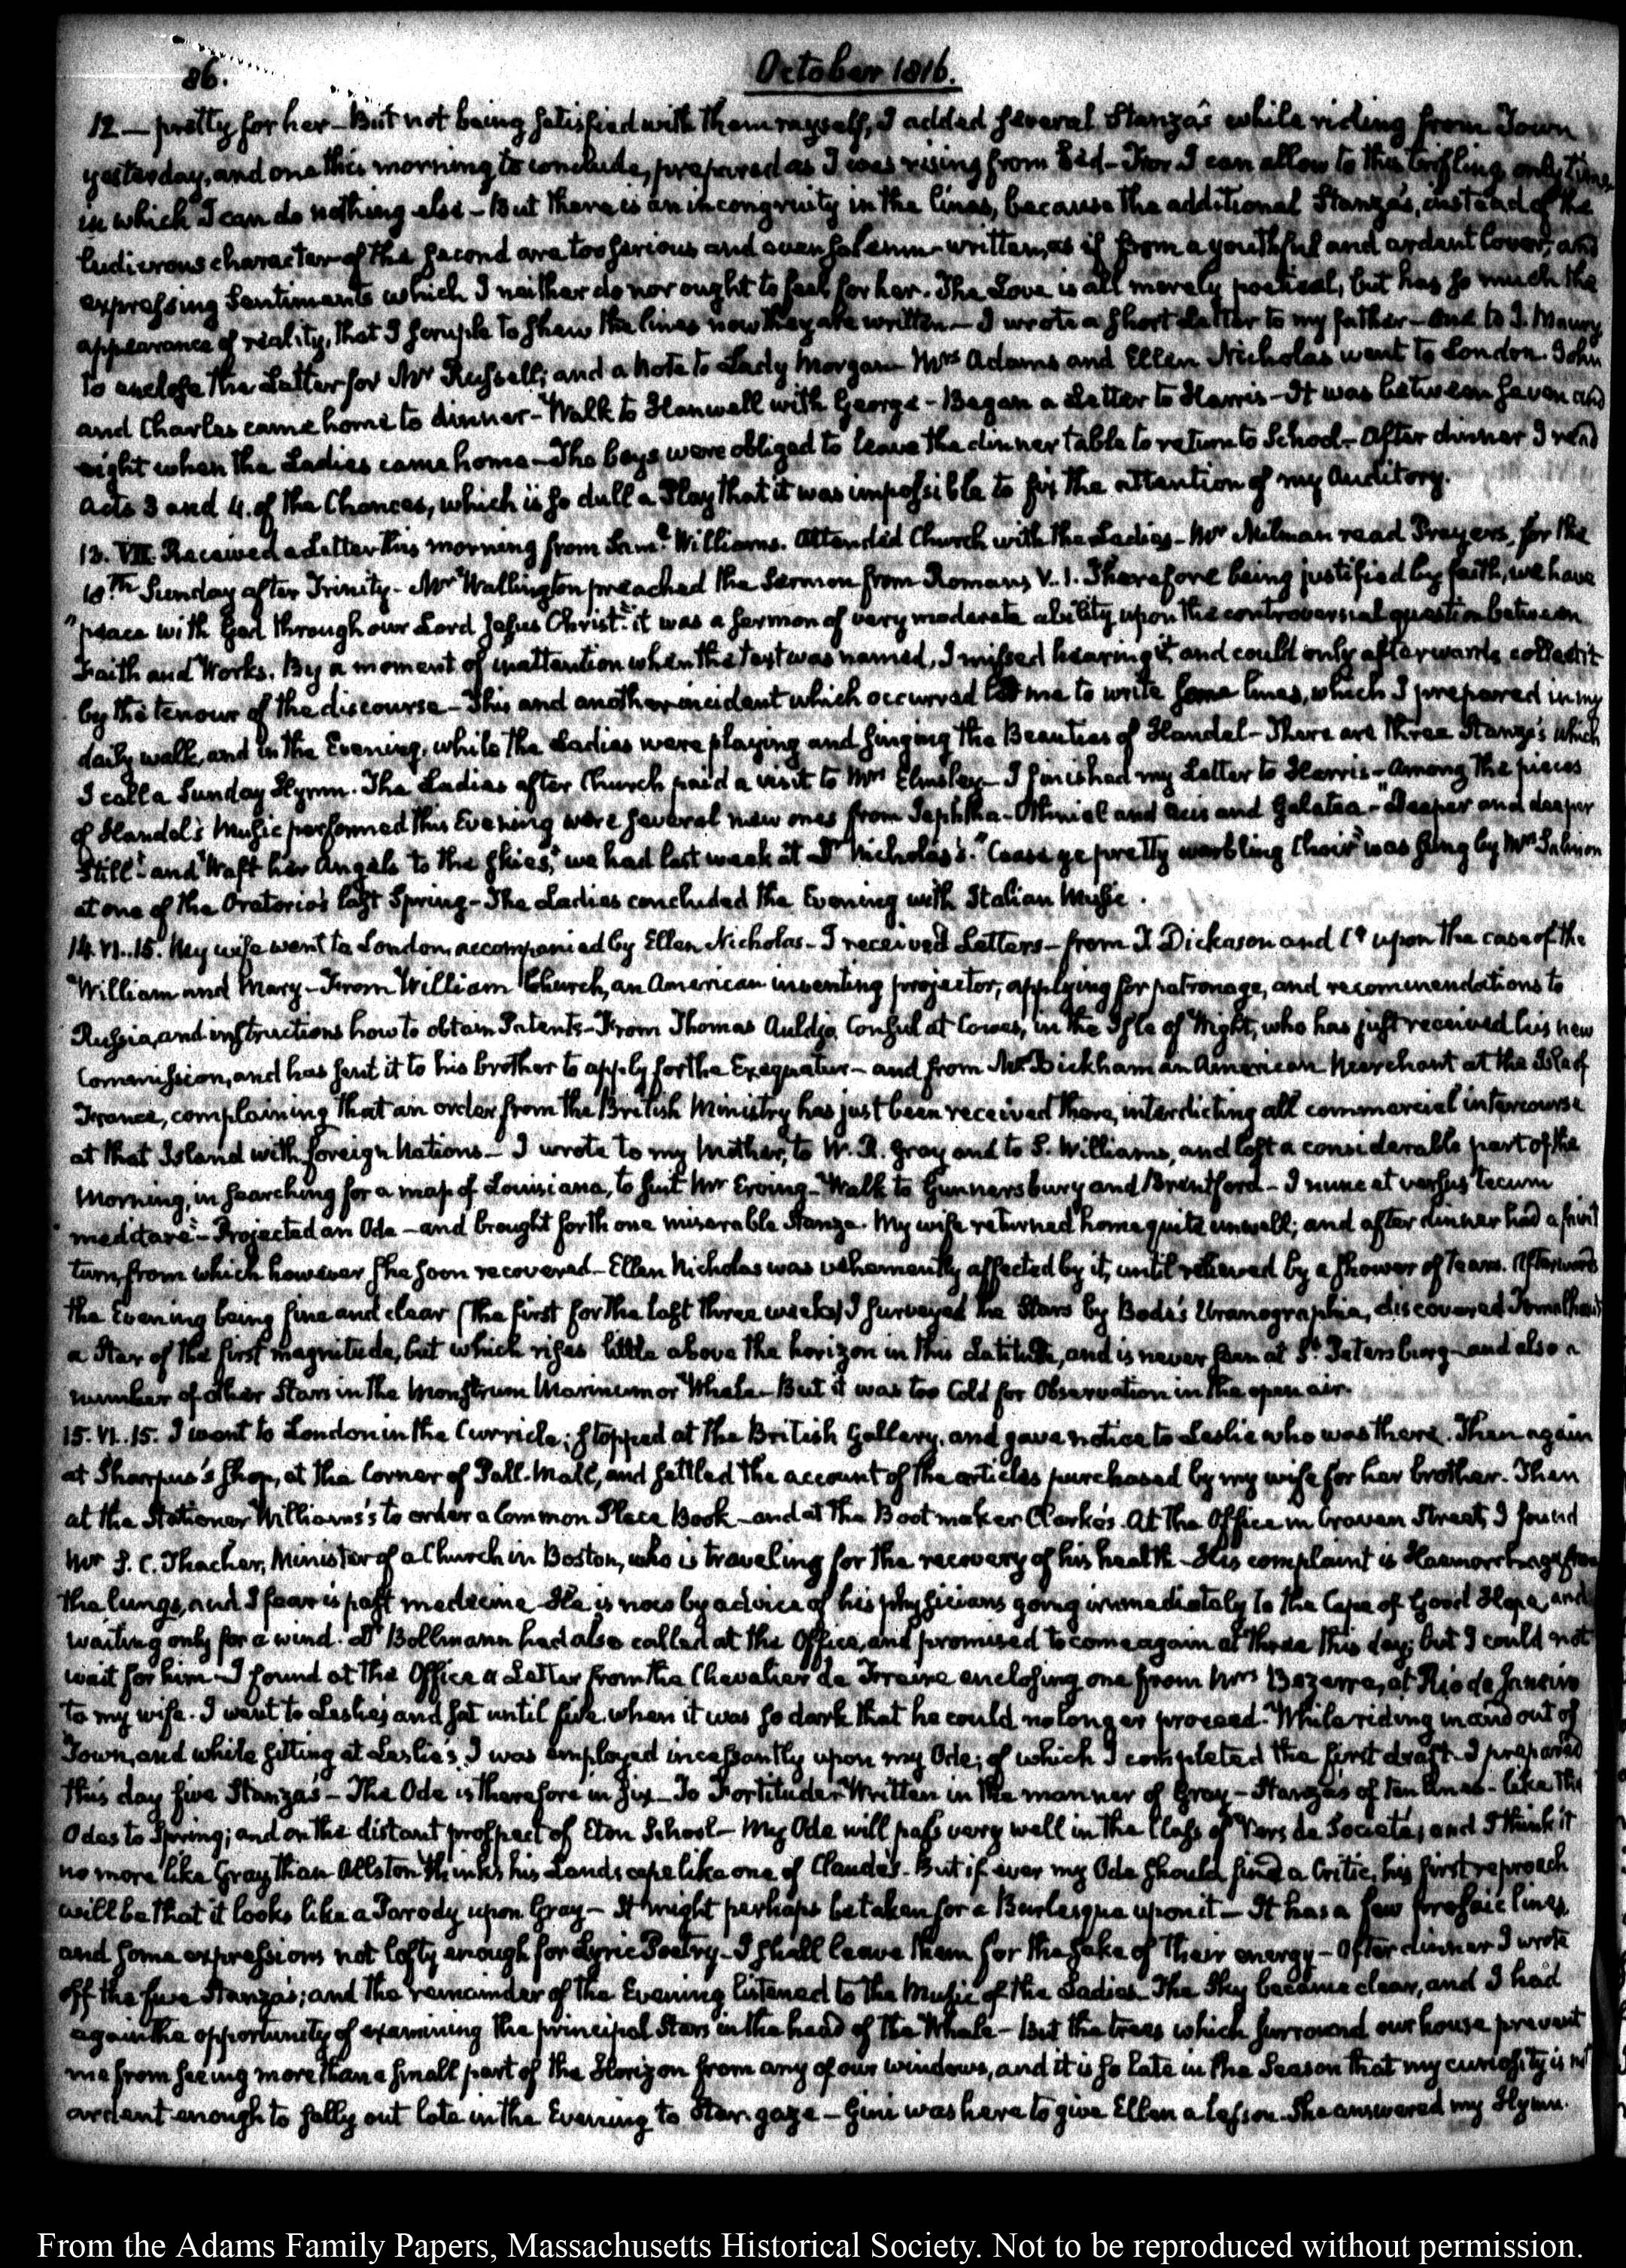 86.
October 1816.
12 — pretty for her — But not being satisfied with them myself, I added several Stanza's while riding from Town
yesterday, and one this morning to conclude, prepared as I was rising from bed — For I can allow to this trifling only time
in which I can do nothing else — But there is an incongruity in the lines, because the additional Stanza's, instead of the
ludicrous character of the second are too serious and even solemn — written, as if from a youthful and ardent lover, and
expressing sentiments which I neither do nor ought to feel for her. The Love is all merely poetical, but has so much the
appearance of reality, that I scruple to shew the lines now they are written — I wrote a short Letter to my father — one to J. Maury
to enclose the Letter for Mr Russell; and a note to Lady Morgan — Mrs Adams and Ellen Nicholas went to London. John
and Charles came home to dinner — Walk to Hanwell with George — Began a Letter to Harris — It was between seven and
eight when the Ladies came home — The boys were obliged to leave the dinner table to return to School — After dinner I read
acts 3 and 4. of the Chances, which is so dull a Play that it was impossible to fix the attention of my Auditory.
13. VII. Received a Letter this morning from Saml. Williams. Attended Church with the Ladies — Mr Milman read Prayers, for the
18th Sunday after Trinity — Mr Wallington preached the Sermon from Romans V. 1. Therefore being justified by faith, we have
"peace with God through our Lord Jesus Christ." it was a sermon of very moderate ability upon the controversial question between
Faith and Works. By a moment of inattention when the text was named, I missed hearing it, and could only afterwards collect it
by the tenour of the discourse — This and another incident which occurred led me to write some lines, which I prepared in my
daily walk, and in the Evening, while the Ladies were playing and singing the Beauties of Handel — There are three Stanza's which
I call a Sunday Hymn. The Ladies after Church paid a visit to Mrs Elmsley — I finished my Letter to Harris — Among the pieces
of Handel's Music performed this Evening were several new ones from Jephtha — Othniel and Acis and Galatea — "Deeper and deeper
still" and "Waft her Angels to the skies," we had last week at Dr Nicholas's. "Cease ye pretty warbling Choir" was sung by Mrs Salmon
at one of the Oratorio's last Spring — The Ladies concluded the Evening with Italian Music.
14. VI..15. My wife went to London, accompanied by Ellen Nicholas — I received Letters — from T. Dickason and Co upon the case of the
William and Mary — From William Church, an American inventing projector, applying for patronage, and recommendations to
Russia, and instructions how to obtain Patents — From Thomas Auldjo Consul at Cowes, in the Isle of Wight, who has just received his new
Commission, and has sent it to his brother to apply for the Exequatur — and from Mr Bickham an American Merchant at the Isle of
France, complaining that an order from the British Ministry has just been received there, interdicting all commercial intercourse
at that Island with foreign Nations — I wrote to my Mother, to W. R. Gray and to S. Williams, and lost a considerable part of the
Morning, in searching for a map of Louisiana, to suit Mr Erving — Walk to Gunnersbury and Brentford — I nunc et versus tecum
meditare — Projected an Ode — and brought forth one miserable Stanza. My wife returned home quite unwell; and after dinner had a faint
turn, from which however she soon recovered — Ellen Nicholas was vehemently affected by it, until relieved by a shower of tears. Afterwards
the Evening being fine and clear (the first for the last three weeks) I surveyed the Stars by Bode's Uranographia, discovered Fomalhaut
a Star of the first magnitude, but which rises little above the horizon in this Latitude, and is never seen at St Petersburg — and also a
number of other Stars in the Monstrum Marinum or Whale — But it was too Cold for Observation in the open air.
15. VI..15. I went to London in the Curricle; stopped at the British Gallery, and gave notice to Leslie who was there. Then again
at Sharpus's shop, at the Corner of Pall-Mall, and settled the account of the articles purchased by my wife for her brother. Then
at the Stationer Williams's to order a Common Place Book — and at the Bootmaker Clarke's. At the Office in Craven Street, I found
Mr S. C. Thacher, Minister of a Church in Boston, who is traveling for the recovery of his health — His complaint is Haemorrhage from
the lungs, and I fear is past medicine. He is now by advice of his physicians going immediately to the Cape of Good Hope, and
waiting only for a wind. Dr Bollmann had also called at the Office, and promised to come again at three this day; but I could not
wait for him — I found at the Office a Letter from the Chevalier de Freire enclosing one from Mrs Bezerra, at Rio de Janeiro
to my wife. I went to Leslie's and sat until five, when it was so dark that he could no longer proceed. While riding in and out of
Town, and while sitting at Leslie's I was employed incessantly upon my Ode; of which I completed the first draft — I prepared
this day five Stanza's — The Ode is therefore in six — To Fortitude — Written in the manner of Gray — Stanza's of ten lines — like the
Odes to Spring; and on the distant prospect of Eton School — My Ode will pass very well in the Class of Vers de Société, and I think it
no more like Gray than Allston thinks his Landscape like one of Claude's. But if ever my Ode should find a Critic, his first reproach
will be that it looks like a Parody upon Gray — It might perhaps be taken for a Burlesque upon it — It has a few prosaic lines,
and some expressions not lofty enough for Lyric Poetry — I shall leave them for the sake of their energy — After dinner I wrote
off the five Stanza's; and the remainder of the Evening listened to the Music of the Ladies. The Sky became clear, and I had
again the opportunity of examining the principal Stars in the head of the Whale — But the trees which surround our house prevent
me from seeing more than a small part of the Horizon from any of our windows, and it is so late in the Season that my curiosity is not
ardent enough to sally out late in the Evening to Star-gaze — Gini was here to give Ellen a lesson. She answered my Hymn.
From the Adams Family Papers, Massachusetts Historical Society. Not to be reproduced without permission.